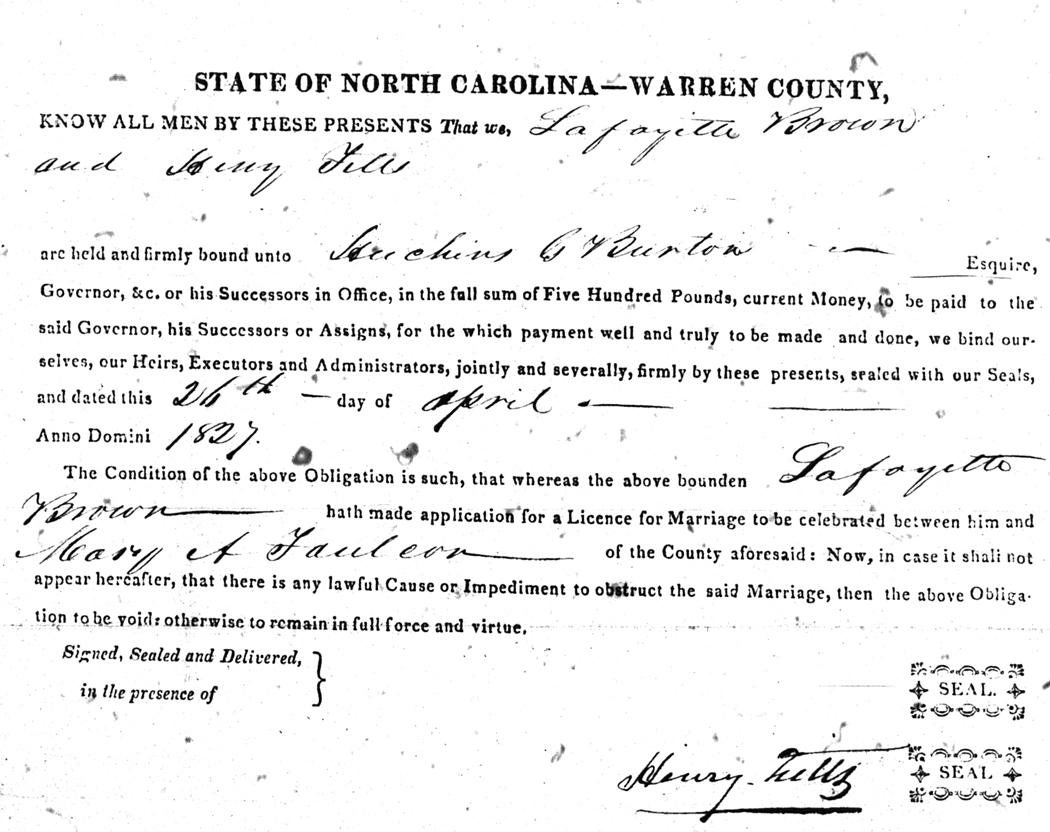 STATE OF NORTH CAROLINA—WARREN COUNTY,
KNOW ALL MEN BY THESE PRESENTS That we, Lafayette Brown
and Henry Fitts
are held and firmly bound unto Hutchins G Burton — Esquire,
Governor, &c. or his Successors in Office, in the full sum of Five Hundred Pounds, current Money, to be paid to the
said Governor, his Successors or Assigns, for the which payment well and truly to be made and done, we bind our-
selves, our Heirs, Executors and Administrators, jointly and severally, firmly by these presents, sealed with our Seals,
and dated this 26th — day of April —
Anno Domini 1827.
The Condition of the above Obligation is such, that whereas the above bounden Lafayette
Brown — hath made application for a Licence for Marriage to be celebrated between him and
Mary A Faulcon — of the County aforesaid: Now, in case it shall not
appear hereafter, that there is any lawful Cause or Impediment to obstruct the said Marriage, then the above Obliga-
tion to be void: otherwise to remain in full force and virtue.
Signed, Sealed and Delivered,
in the presence of
SEAL.
Henry Fitts SEAL